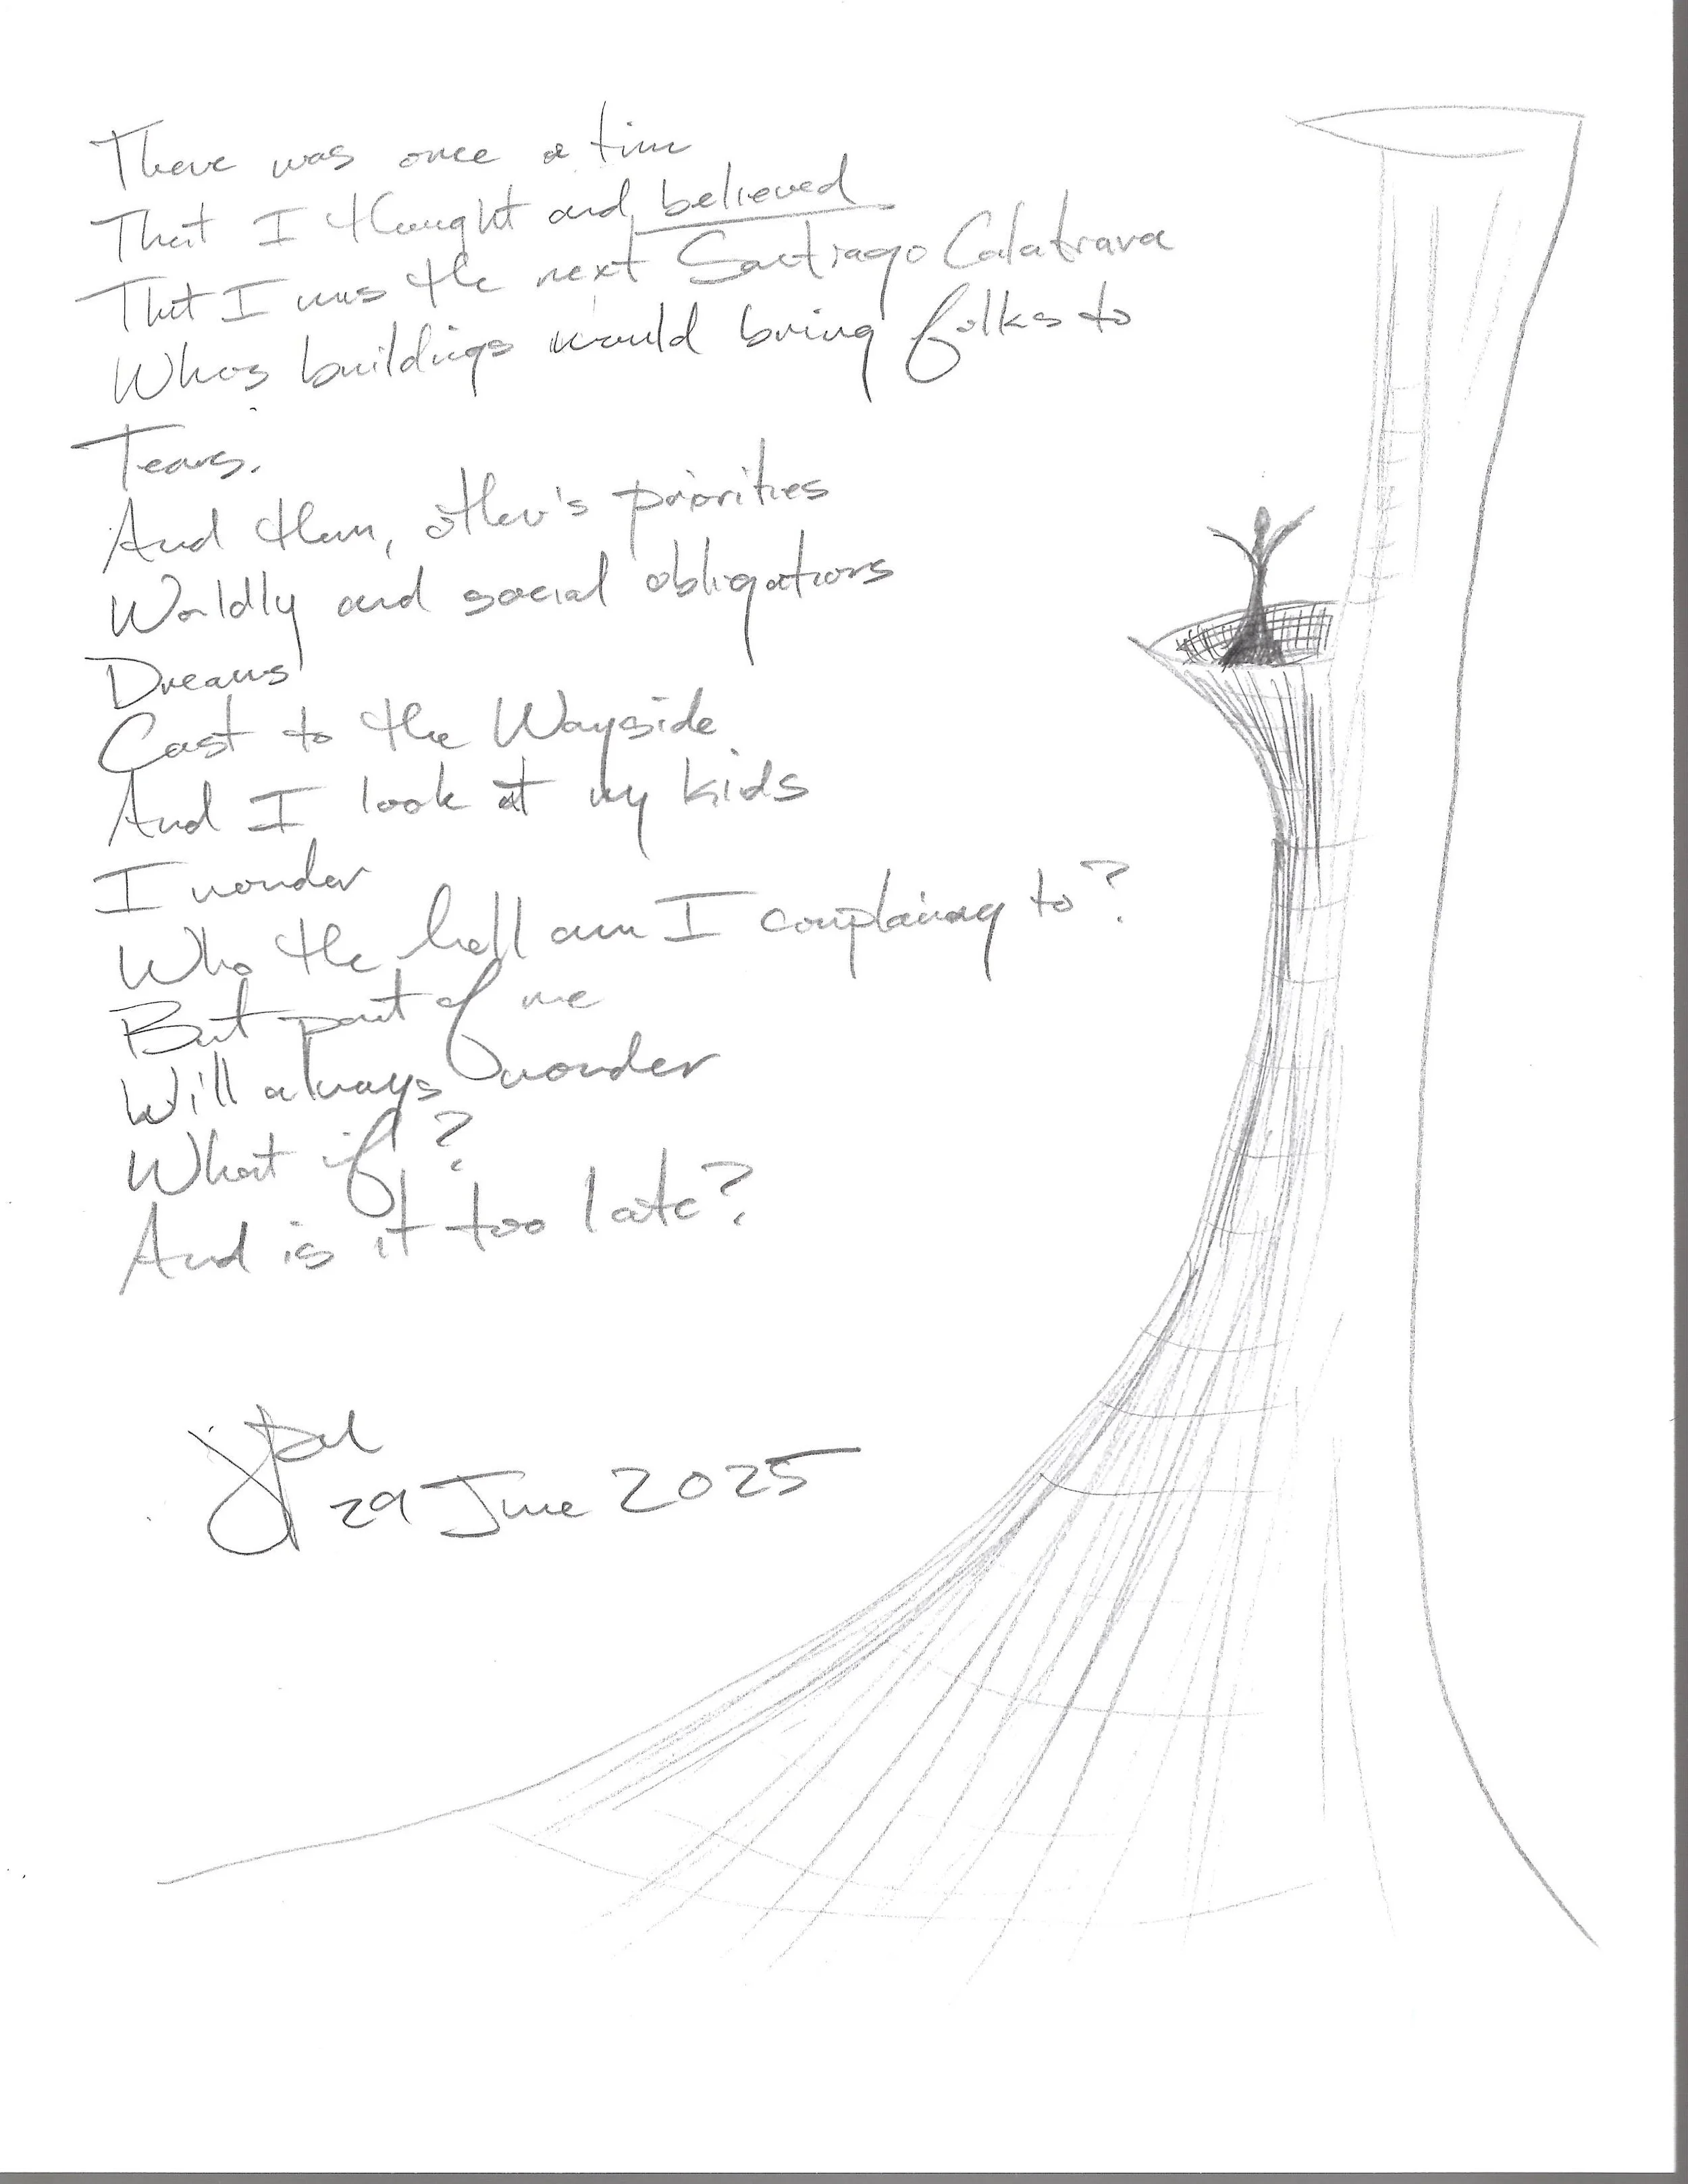 There was once a time
That I thought and believed
That I was the next Santiago Calatrava
Whos buildings would bring folks to
Tears.
And then, other's priorities
Worldly and social obligations
Dreams
Cast to the Wayside
And I look at my kids
I wonder
Who the hell am I complaining to?
But part of me
Will always wonder
What if?
And is it too late?
29 June 2025